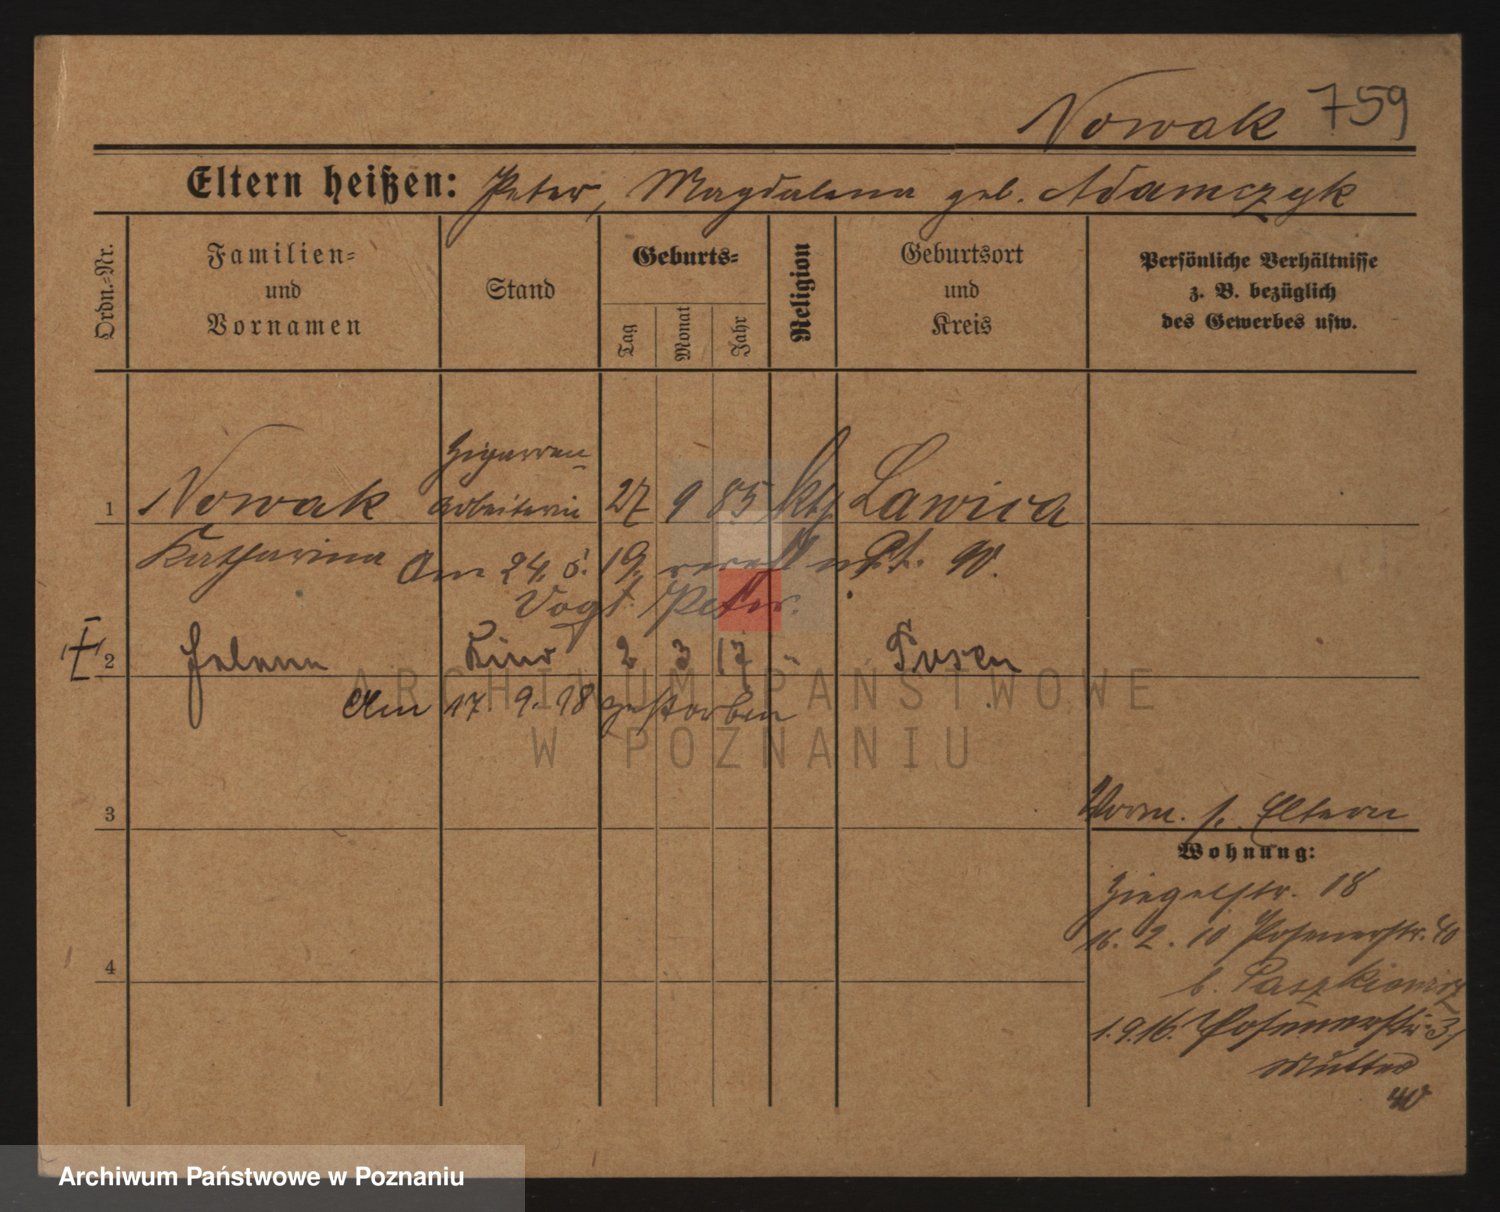 Nowak 759
Eltern heißen: Peter, Magdalena geb. Adamczyk
Ordn.=Nr.
Familien=
und
Vornamen
Stand
Geburts=
Tag
Monat
Jahr
Religion
Geburtsort
und
Kreis
Persönliche Verhältnisse
z. B. bezüglich
des Gewerbes usw.
Zigarren-
1 Nowak arbeiterin 27 9 85 kth Lawica
Katharina Am 24. 5. 19 verh. m.
Vogt Peter.
2 Helena Kind 2 3 17 " Posen
Am 17 9. 18 gestorben
ARCHIWUM PAŃSTWOWE
W POZNANIU
3
Vorm. s. Eltern
Wohnung:
Ziegelstr. 18
2. 10 Posenerstr. 40
b. Paszkiewicz
4
1.9.16. Posenerstr. 31
Mutter
Archiwum Państwowe w Poznaniu